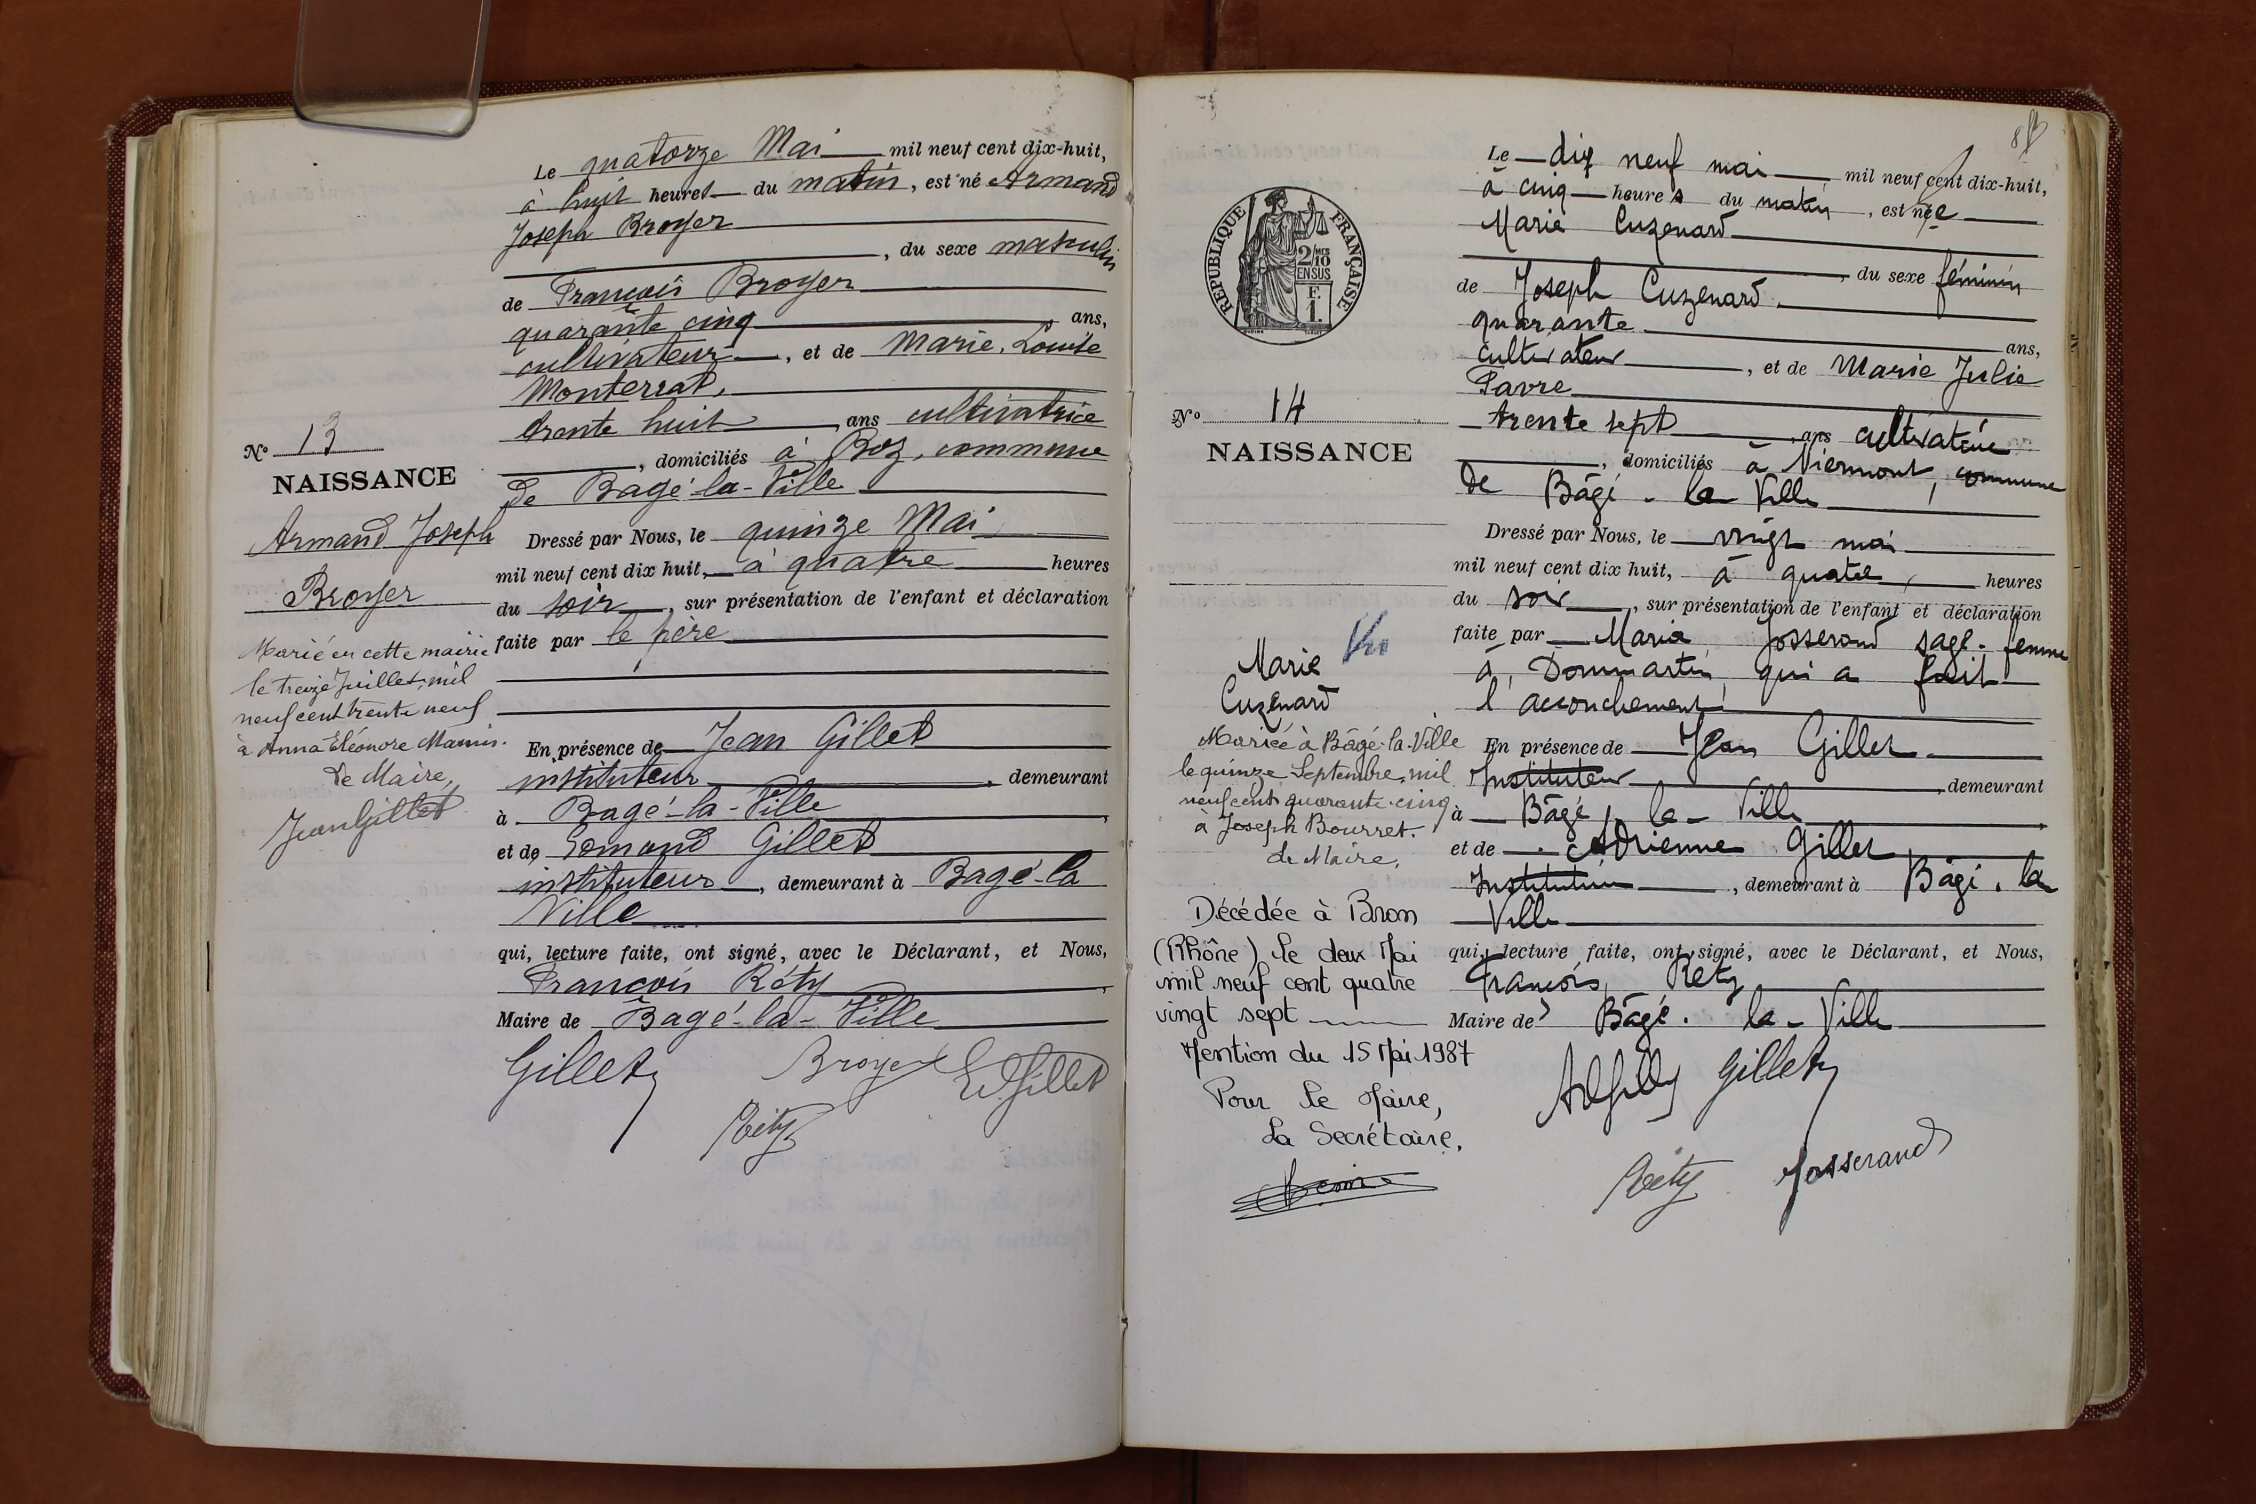 Le quatorze Mai mil neuf cent dix-huit,
à huit heures du matin, est né Armand
Joseph Broyer
, du sexe masculin
de François Broyer
quarante cinq ans,
cultivateur, et de Marie Louise
Monterrat,
trente huit, ans cultivatrice
, domiciliés à Boz, commune
de Bagé-la-Ville
Dressé par Nous, le quinze Mai
mil neuf cent dix huit, à quatre heures
du soir, sur présentation de l'enfant et déclaration
faite par le père
En présence de Jean Gillet
instituteur, demeurant
à Bagé-la-Ville,
et de Edmond Gillet
instituteur, demeurant à Bagé-la
Ville
qui, lecture faite, ont signé, avec le Déclarant, et Nous,
François Réty,
Maire de Bagé-la-Ville
Gillet Broyer Ed Gillet
Réty
No 13
NAISSANCE
Armand Joseph
Broyer
Marié en cette mairie
le treize Juillet mil
neuf cent trente neuf
à Anna Eléonore
Le Maire,
Jean Gillet
Le dix neuf mai mil neuf cent dix-huit,
à cinq heures du matin, est née
Marie Cuzenard
, du sexe féminin
de Joseph Cuzenard
quarante ans,
cultivateur, et de Marie Julie
Favre
trente sept, ans cultivateur
, domiciliés à Niermont, commune
de Bâgé-la-Ville
Dressé par Nous, le vingt mai
mil neuf cent dix huit, à quatre, heures
du soir, sur présentation de l'enfant et déclaration
faite par Maria Josserand sage-femme
à Dommartin qui a fait
l'accouchement
En présence de Jean Gillet
Instituteur, demeurant
à Bâgé-la-Ville
et de Adrienne Gillet
, demeurant à Bâgé-la
Ville
qui, lecture faite, ont signé, avec le Déclarant, et Nous,
François Réty
Maire de Bâgé-la-Ville
Gillet
Réty Josserand
RÉPUBLIQUE FRANÇAISE
2/10
EN SUS
F.
1.
No 14
NAISSANCE
Vu
Marie
Cuzenard
Mariée à Bâgé-la-Ville
le quinze Septembre mil
neuf cent quarante-cinq
à Joseph Bourret.
Le Maire,
Décédée à Bron
(Rhône) le deux Mai
mil neuf cent quatre
vingt sept
Mention du 15 Mai 1987
Pour le Maire,
La Secrétaire,